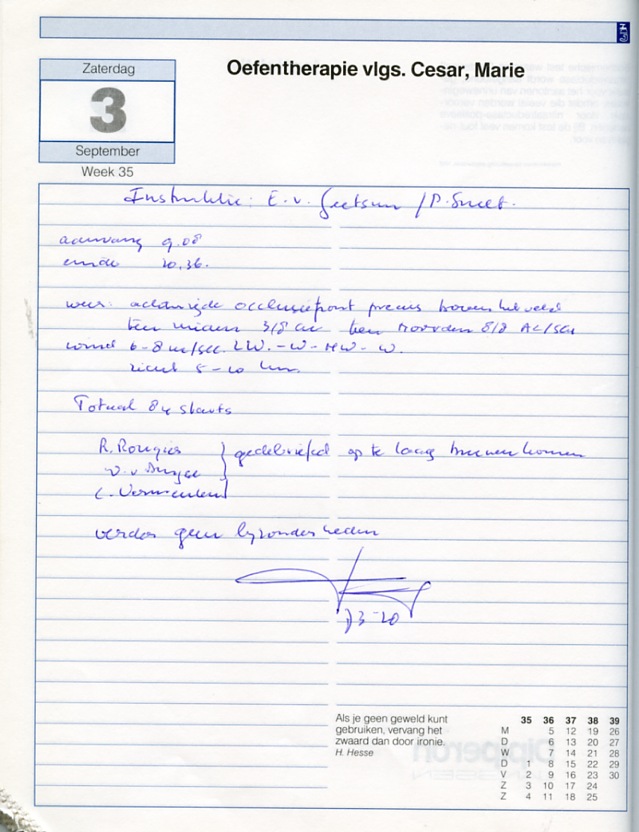 Zaterdag
3
September
Week 35
Oefentherapie vlgs. Cesar, Marie
Instruktie: E. v. / P. Smeet.
aanvang 9.08
einde 20.36.
weer: occlusiefront precies boven het veld
ten zuiden 3/8 cu ten noorden 8/8 AC/SC
wind 6-8 m/sec. ZW. - W - NW - W.
zicht 5-10 km.
Totaal 84 starts
R. Rougies } gedebriefed op te laag binnenkomen
v. v
C. Vermeulen
verder geen bijzonderheden
Als je geen geweld kunt
gebruiken, vervang het
zwaard dan door ironie.
H. Hesse
35 36 37 38 39
M 5 12 19 26
D 6 13 20 27
W 7 14 21 28
D 1 8 15 22 29
V 2 9 16 23 30
Z 3 10 17 24
Z 4 11 18 25